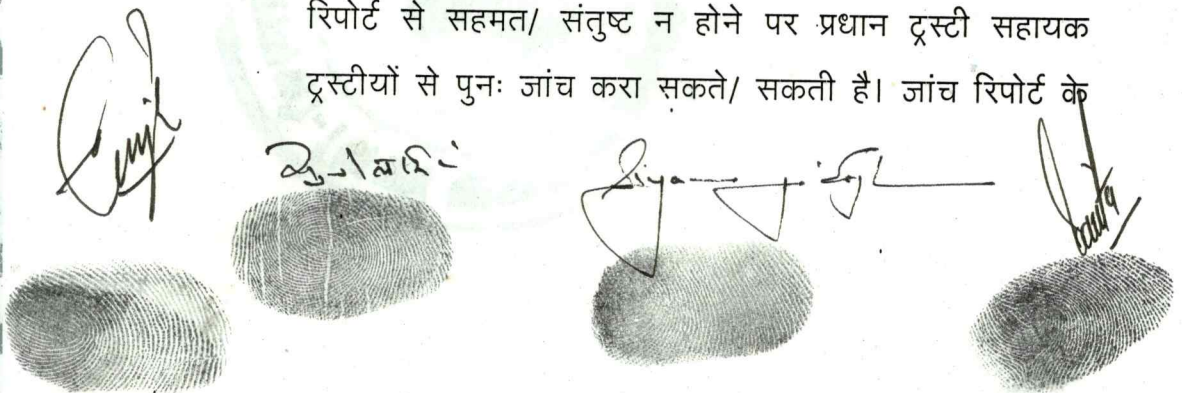 रिपोर्ट से सहमत/ संतुष्ट न होने पर प्रधान ट्रस्टी सहायक
ट्रस्टीयों से पुनः जांच करा सकते/ सकती है। जांच रिपोर्ट के